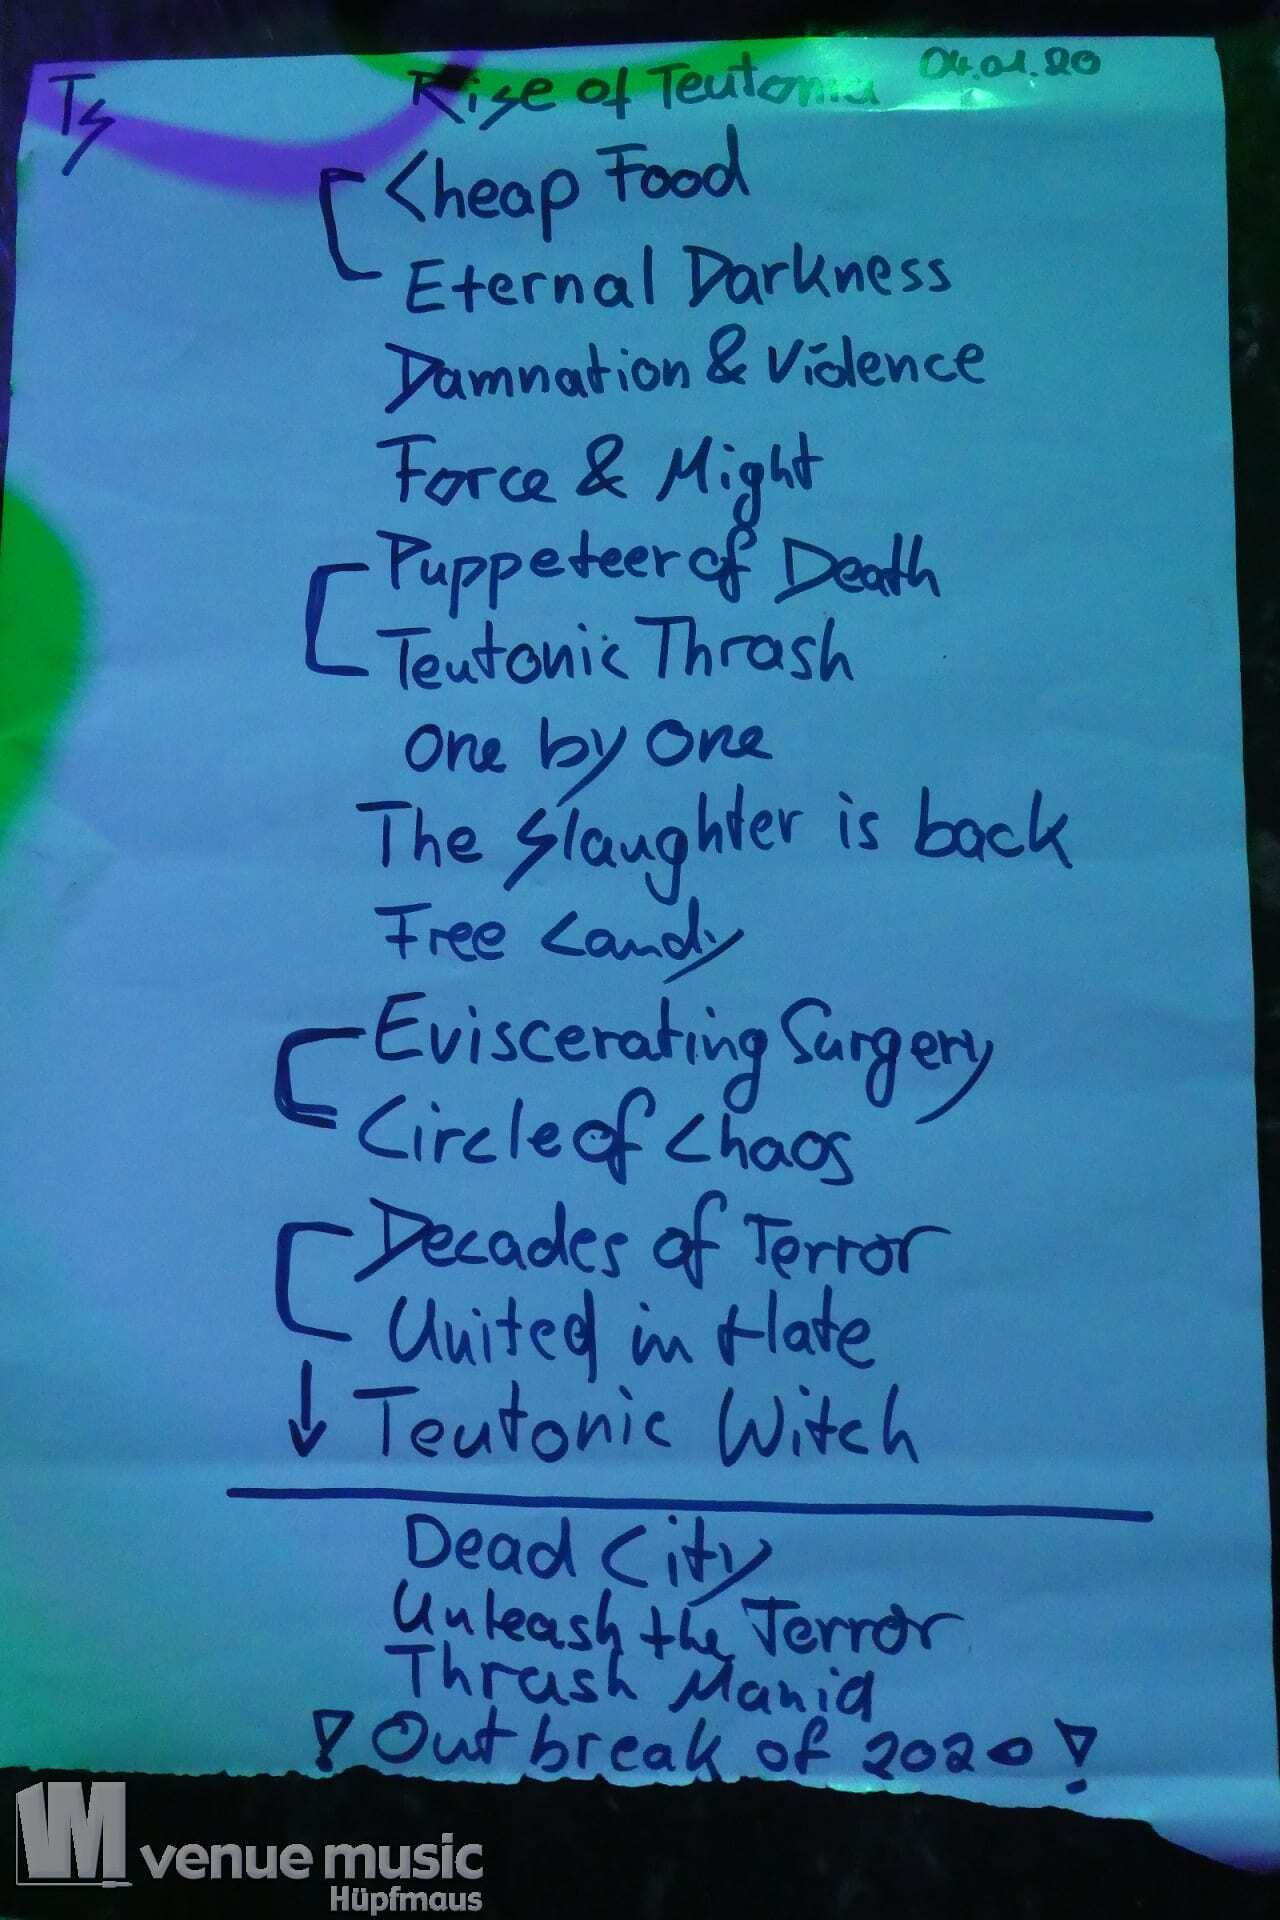 Ts
Rise of Teutonia 04.01.20
Cheap Food
Eternal Darkness
Damnation & Violence
Force & Might
Puppeteer of Death
Teutonic Thrash
One by One
The Slaughter is back
Free Candy
Eviscerating Surgery
Circle of Chaos
Decades of Terror
United in Hate
↓ Teutonic Witch
Dead City
Unleash the Terror
Thrash Mania
! Outbreak of 2020 !
VM venue music
Hüpfmaus